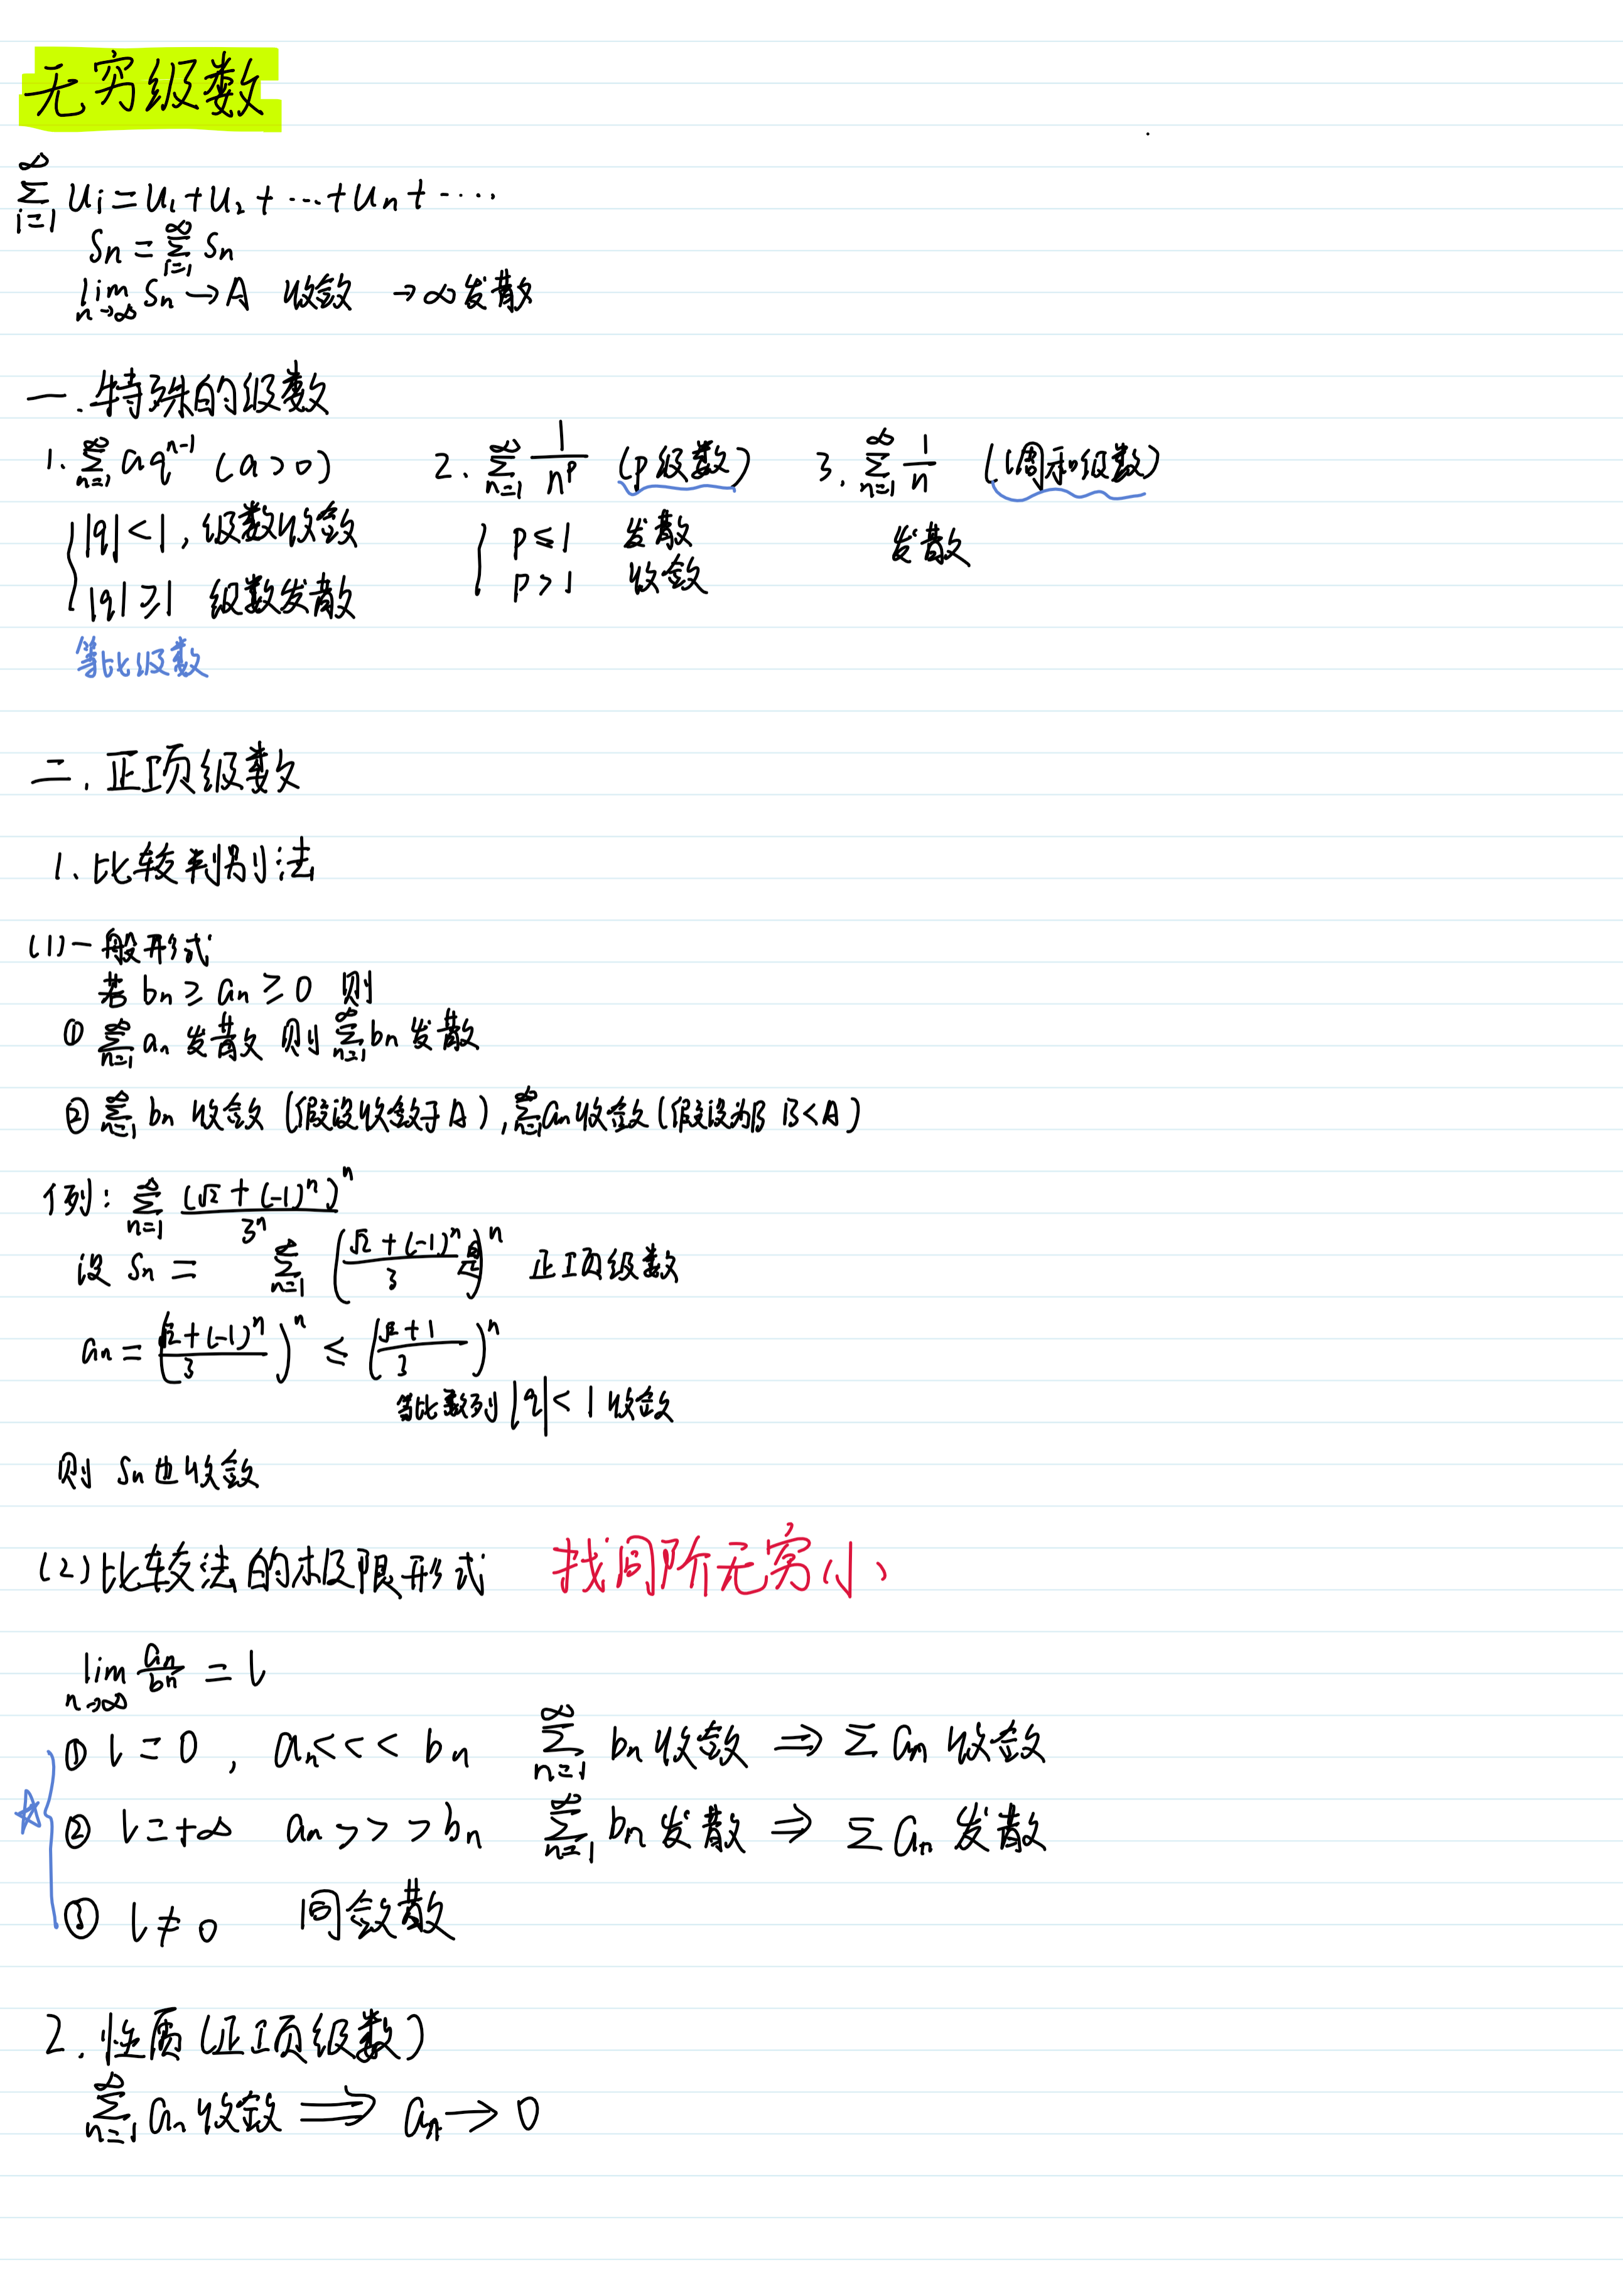 无穷级数
∞∑i=1 uᵢ = u₁ + u₂ + … + uₙ + ····
Sₙ = ∞∑i=1 Sₙ
lim n→∞ Sₙ → A 收敛 → ∞ 发散
一. 特殊的级数
1. ∞∑n=1 aqⁿ⁻¹ (a > 0) 2. ∞∑n=1 1/nᵖ (p级数) 3. ∞∑n=1 1/n (调和级数)
|q| < 1, 级数收敛 p ≤ 1 发散 发散
|q| ≥ 1 级数发散 p > 1 收敛
等比级数
二. 正项级数
1. 比较判别法
(1) 一般形式
若 bₙ ≥ aₙ ≥ 0 则
① ∞∑n=1 aₙ 发散 则 ∞∑n=1 bₙ 发散
② ∞∑n=1 bₙ 收敛 (假设收敛于A), ∞∑n=1 aₙ 收敛 (假设为B B < A)
例: ∞∑n=1 (√2 + (-1)ⁿ)ⁿ / 3ⁿ
设 Sₙ = ∞∑n=1 ((√2 + (-1)ⁿ)/3)ⁿ 正项级数
aₙ = ((√2 + (-1)ⁿ)/3)ⁿ ≤ ((√2 + 1)/3)ⁿ
等比数列 |q| < 1 收敛
则 Sₙ 也收敛
(2) 比较法的极限形式 找同阶无穷小
lim n→∞ aₙ/bₙ = l
① l = 0, aₙ <<< bₙ ∞∑n=1 bₙ 收敛 ⇒ ∑ aₙ 收敛
☆ ② l = +∞ aₙ >>> bₙ ∞∑n=1 bₙ 发散 ⇒ ∑ aₙ 发散
③ l ≠ 0 同敛散
2. 性质 (正项级数)
∞∑n=1 aₙ 收敛 ⟹ aₙ → 0